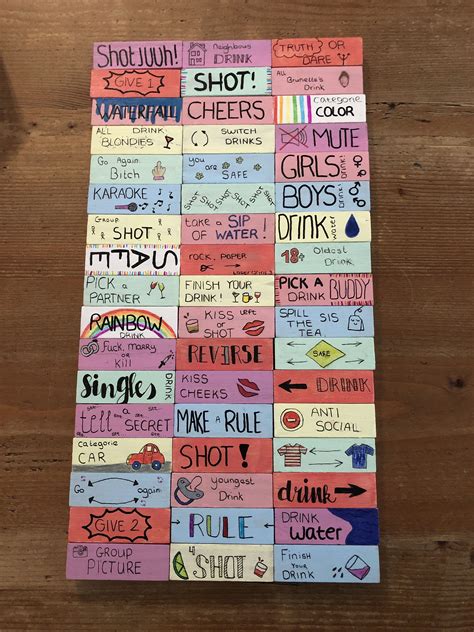 Shotjuuh!
Neighbours
DRINK
TRUTH OR
DARE
GIVE 1
SHOT!
All
Brunette's
Drink
WATERFALL
CHEERS
Categorie
COLOR
ALL DRINK
BLONDIES
SWITCH
DRINKS
MUTE
Go Again
Bitch
you are
SAFE
GIRLS
Drink!
KARAOKE
SHOT SHOT SHOT SHOT SHOT
BOYS
Drink!
Group
SHOT
take a SIP
OF WATER!
DRINK
water
SAFE
ROCK, PAPER
18+
Oldest
Drink
PICK A
PARTNER
FINISH YOUR
DRINK!
PICK A
DRINK BUDDY
RAINBOW
DRINK
KISS left
OR
SHOT
SPILL SIS
THE
TEA
Fuck, marry
or
Kill
REVERSE
SAFE
Singles
DRINK
KISS
CHEEKS
DRINK
tell a
SECRET
MAKE A RULE
ANTI
SOCIAL
Categorie
CAR
SHOT!
Go again
Youngest
Drink
drink
GIVE 2
RULE
DRINK
water
GROUP
PICTURE
SHOT
Finish
your
DRINK